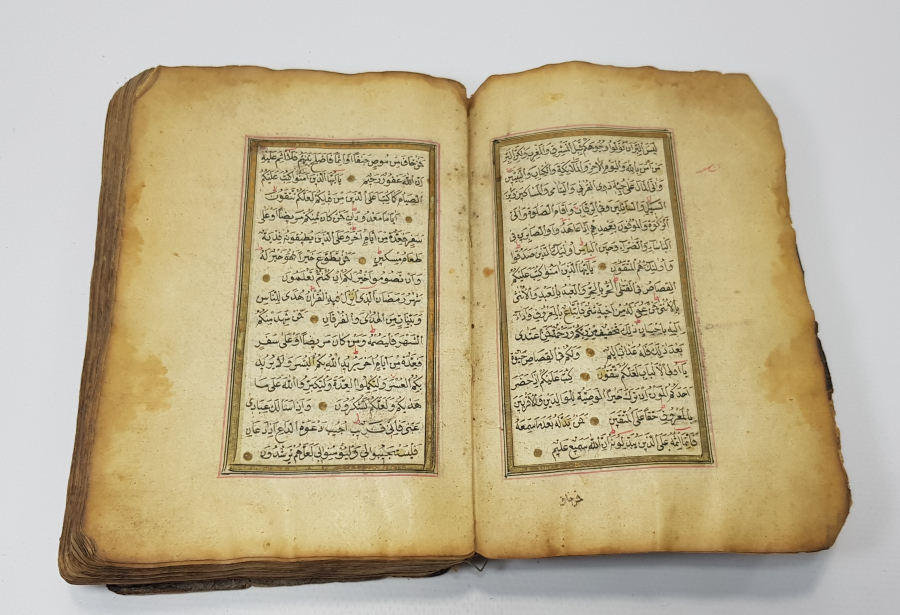 ليس البر ان تولوا وجوهكم قبل المشرق والمغرب ولكن البر
من آمن بالله واليوم الاخر والملائكة والكتاب والنبيين
وآتى المال على حبه ذوي القربى واليتامى والمساكين وابن
السبيل والسائلين وفي الرقاب واقام الصلوة وآتى
الزكوة والموفون بعهدهم اذا عاهدوا والصابرين في
الباساء والضراء وحين الباس اولئك الذين صدقوا
واولئك هم المتقون يا ايها الذين آمنوا كتب عليكم
القصاص في القتلى الحر بالحر والعبد بالعبد والانثى
بالانثى فمن عفي له من اخيه شيء فاتباع بالمعروف واداء
اليه باحسان ذلك تخفيف من ربكم ورحمة فمن اعتدى
بعد ذلك فله عذاب اليم ولكم في القصاص حيوة
يا اولي الالباب لعلكم تتقون كتب عليكم اذا حضر
احدكم الموت ان ترك خيرا الوصية للوالدين والاقربين
بالمعروف حقا على المتقين فمن بدله بعد ما سمعه
فانما اثمه على الذين يبدلونه ان الله سميع عليم
فمن خاف
فمن خاف من موص جنفا او اثما فاصلح بينهم فلا اثم عليه
ان الله غفور رحيم يا ايها الذين آمنوا كتب عليكم
الصيام كما كتب على الذين من قبلكم لعلكم تتقون
اياما معدودات فمن كان منكم مريضا او على
سفر فعدة من ايام اخر وعلى الذين يطيقونه فدية
طعام مسكين فمن تطوع خيرا فهو خير له
وان تصوموا خير لكم ان كنتم تعلمون
شهر رمضان الذي انزل فيه القرآن هدى للناس
وبينات من الهدى والفرقان فمن شهد منكم
الشهر فليصمه ومن كان مريضا او على سفر
فعدة من ايام اخر يريد الله بكم اليسر ولا يريد
بكم العسر ولتكملوا العدة ولتكبروا الله على ما
هديكم ولعلكم تشكرون واذا سالك عبادي
عني فاني قريب اجيب دعوة الداع اذا دعان
فليستجيبوا لي وليؤمنوا بي لعلهم يرشدون